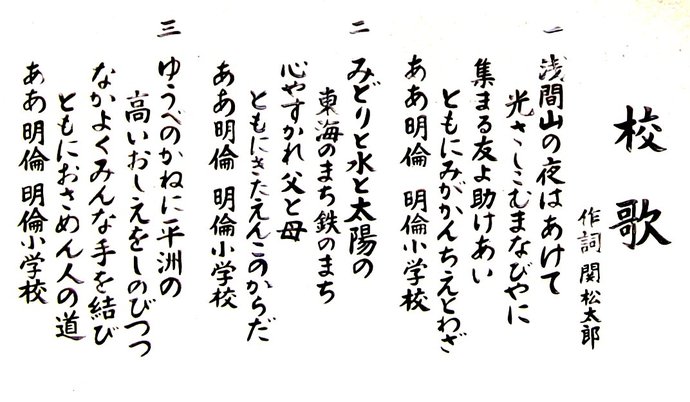 校歌
作詞 関松太郎
一 浅間山の夜はあけて
光さしこむまなびやに
集まる友よ助けあい
ともにみがかんちえとわざ
ああ明倫 明倫小学校
二 みどりと水と太陽の
東海のまち鉄のまち
心やすかれ父と母
ともにきたえんこのからだ
ああ明倫 明倫小学校
三 ゆうべのかねに平洲の
高いおしえをしのびつつ
なかよくみんな手を結び
ともにおさめん人の道
ああ明倫 明倫小学校